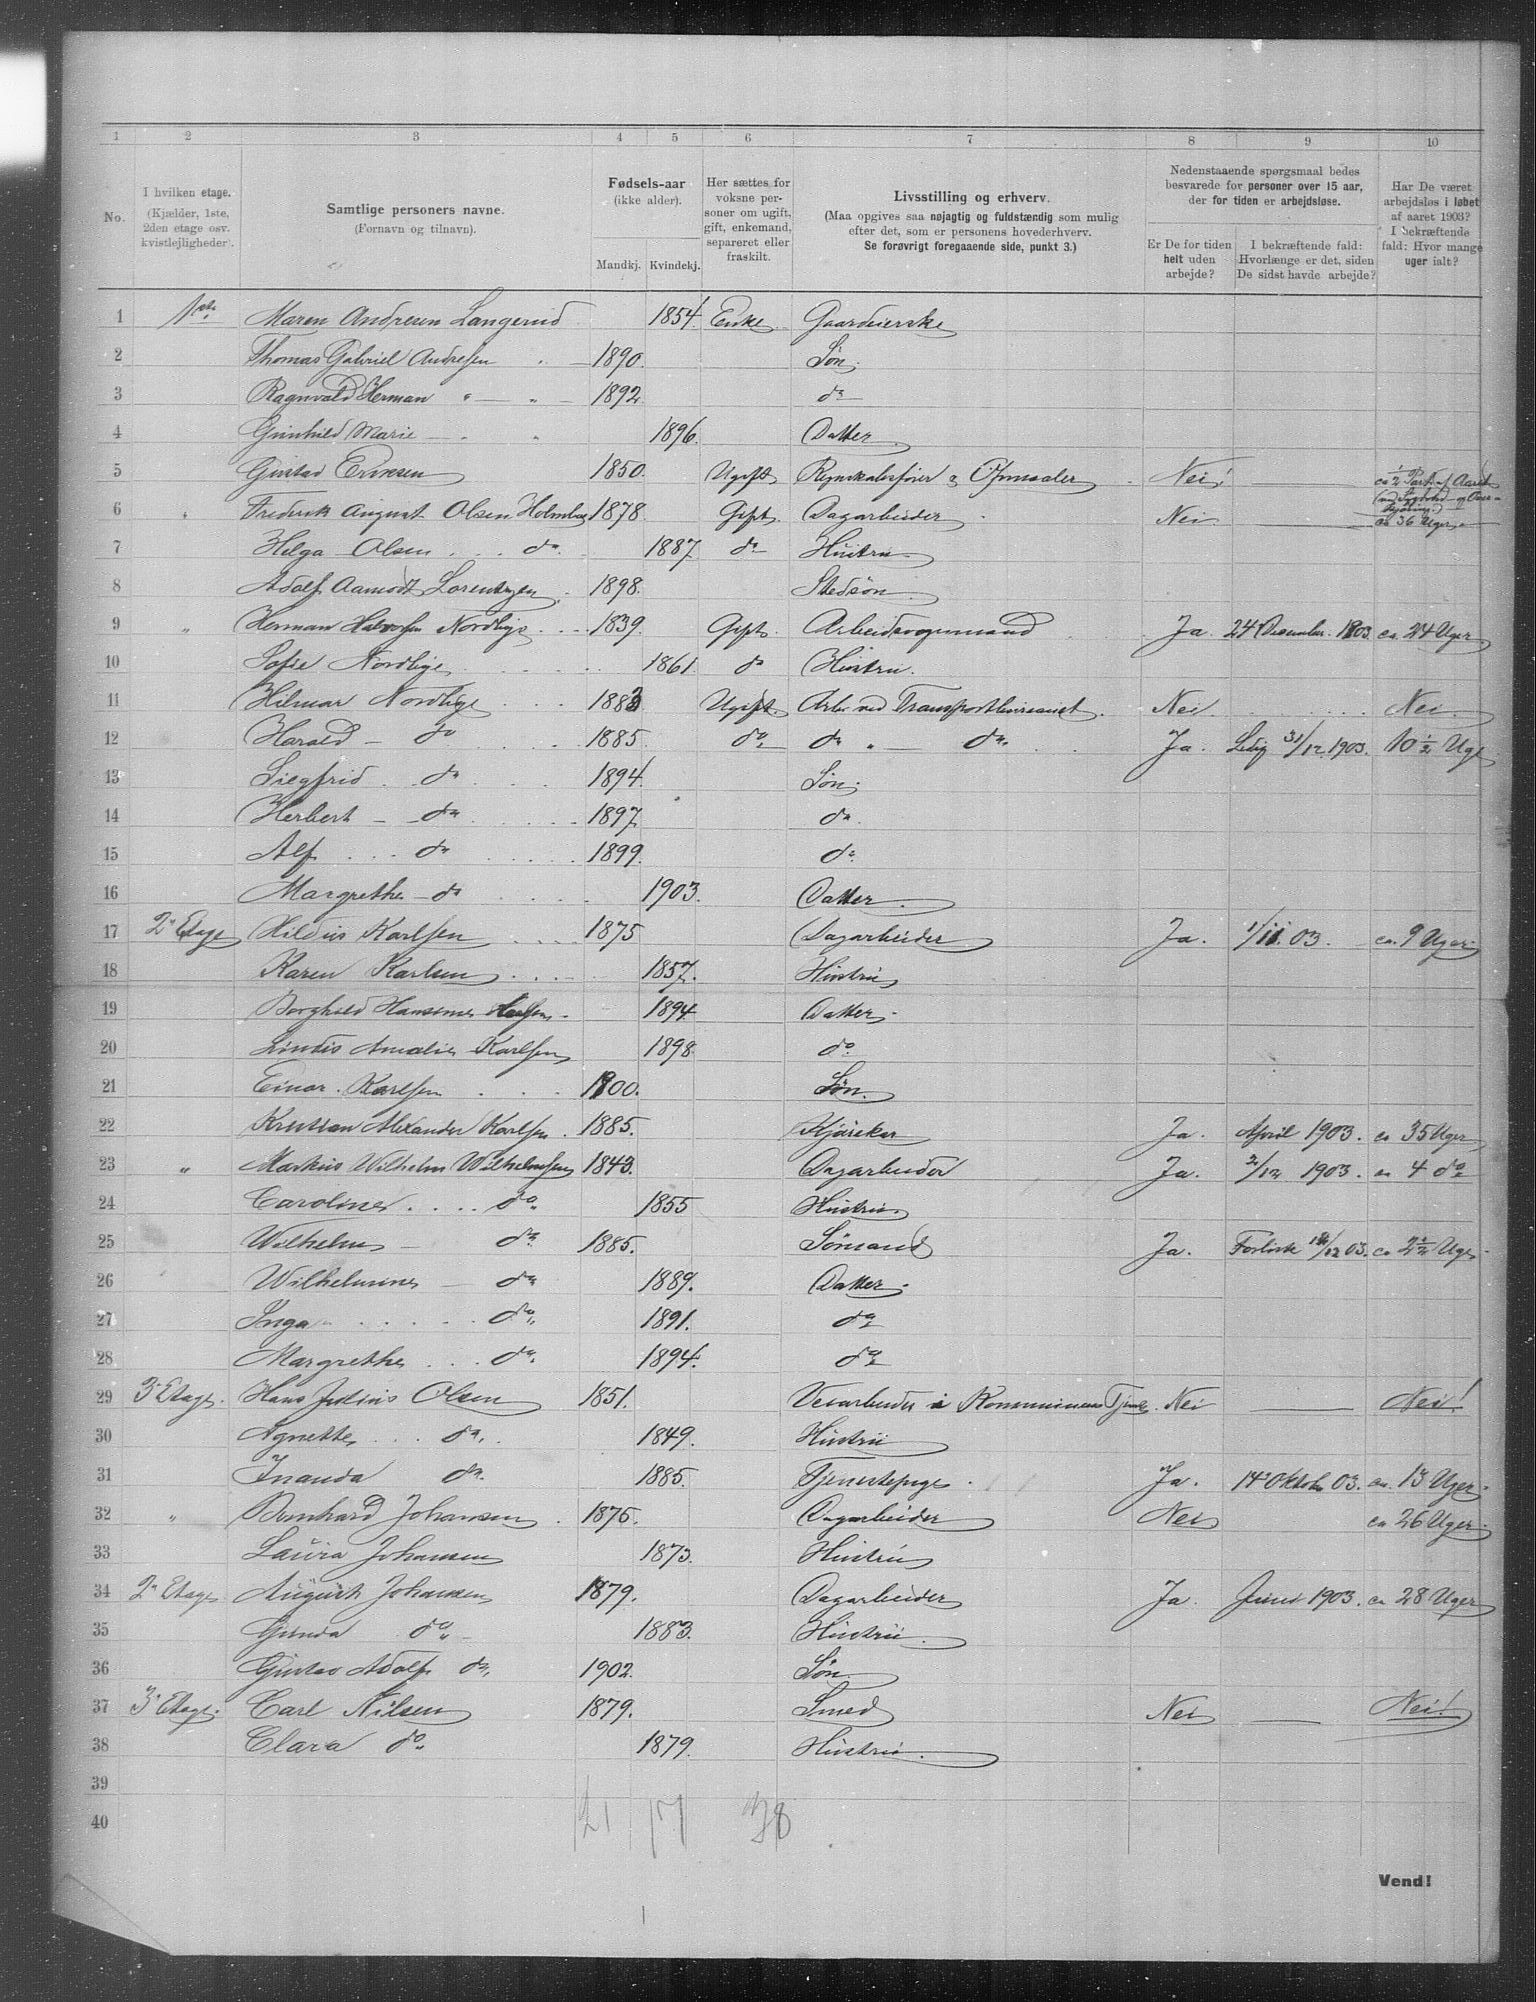 1 2 3 4 5 6 7 8 9 10
No.
I hvilken etage.
(Kjælder, 1ste,
2den etage osv.
kvistlejligheder).
Samtlige personers navne.
(Fornavn og tilnavn).
Fødsels-aar
(ikke alder).
Mandkj. Kvindekj.
Her sættes for
voksne per-
soner om ugift,
gift, enkemand,
separeret eller
fraskilt.
Livsstilling og erhverv.
(Maa opgives saa nøjagtig og fuldstændig som mulig
efter det, som er personens hovederhverv.
Se forøvrigt foregaaende side, punkt 3.)
Nedenstaaende spørgsmaal bedes
besvarede for personer over 15 aar,
der for tiden er arbejdsløse.
Er De for tiden
helt uden
arbejde?
I bekræftende fald:
Hvorlænge er det, siden
De sidst havde arbejde?
Har De været
arbejdsløs i løbet
af aaret 1903?
I bekræftende
fald: Hvor mange
uger ialt?
1 1ste Maren Andresen Langerud 1854. Enke Gaardeierske
2 Thomas Gabriel Andresen " — 1890. Søn.
3 Ragnvald Herman " — " — 1892 do
4 Gunhild Marie — " " 1896. Datter.
5 Gustav Eriksen 1850. Ugift Regnskabsfører & Opmaaler Nei! — ca 1/2 Part af Aaret
6 " Frederik August Olsen Holmberg 1878. Gift. Dagarbeider Nei — ca 36 Uger
7 Helga Olsen do 1887 do Hustru
8 Adolf Aamodt Lorentzen. 1898. Stedsøn.
9 " Herman Halvorsen Nordlige 1839. Gift. Arbeidsvognmand Ja. 24 December. 1903. ca. 24 Uger
10 Sofie Nordlige 1861 do Hustru.
11 Hilmar Nordlige 1883 Ugift. Arb. ved Transportbureauet. Nei. Nei.
12 Harald — do 1885. do do " — do Ja. Ledig 31/12. 1903. 10 1/2 Uge
13 Siegfrid. do 1894. Søn.
14 Herbert — do 1897 do.
15 Alf do 1899. do.
16 Margrethe — do 1903. Datter.
17 2n Etage Hildus Karlsen 1875 Dagarbeider Ja. 1/11. 03. ca. 9 Uger
18 Karen Karlsen 1857. Hustru
19 Borghild Hansine 1894 Datter
20 Lindis Amalie Karlsen 1898 do
21 Einar. Karlsen 1900. Søn.
22 Kristian Alexander Karlsen. 1885. Kjørekar Ja. April 1903. ca 35 Uger
23 " Markus Wilhelm Wilhelmsen 1843. Dagarbeider Ja. 2/12 1903. ca 4 do
24 Caroline do 1855 Hustru
25 Wilhelm — do 1885. Sømand Ja. Forliste /12 03. ca 2 1/2 Uge
26 Wilhelmine — do 1889. Datter
27 Inga do 1891. do
28 Margrethe do 1894. do
29 3. Etage. Hans Julius Olsen 1851. Veiarbeider i Kommunens Tjeneste. Nei — Nei!
30 Agnethe do. 1849. Hustru
31 Inanda do 1885. Tjenestepige Ja. 14 Oktober 03. ca. 13 Uger
32 " Bernhard Johansen 1875. Dagarbeider Nei ca 26 Uger
33 Laura Johansen 1873. Hustru
34 2n Etage August Johansen 1879. Dagarbeider Ja. Juni 1903. ca 28 Uger
35 Gunda do 1883. Hustru
36 Gustav Adolf do. 1902. Søn
37 3. Etage. Carl Nilsen 1879. Smed Nei — Nei!
38 Clara do 1879. Hustru.
39
40 21 17 38
Vend!